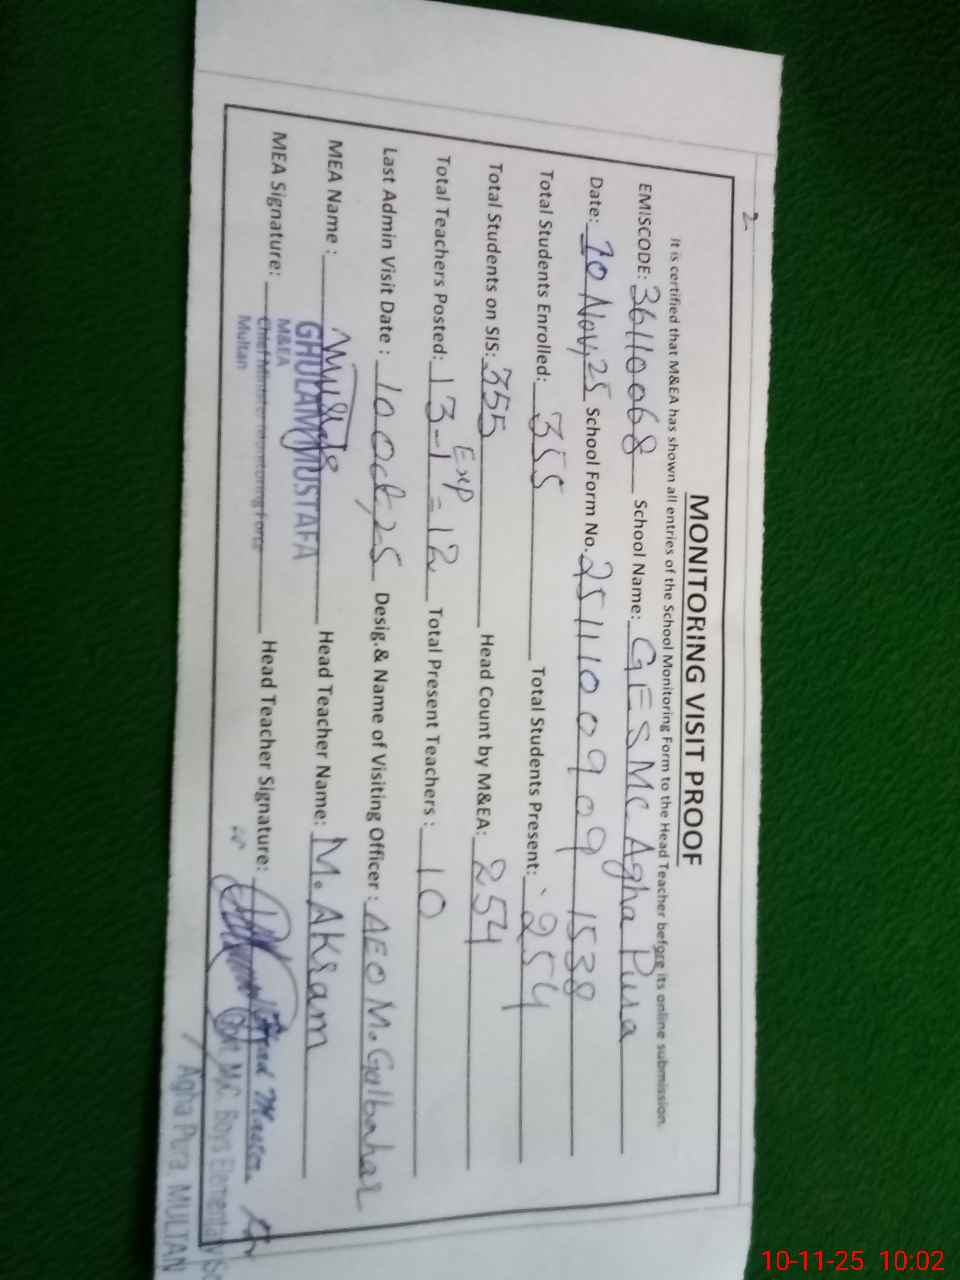 2
MONITORING VISIT PROOF
It is certified that M&EA has shown all entries of the School Monitoring Form to the Head Teacher before its online submission.
EMISCODE: 36110068 School Name: GES MC. Agha Pura
Date: 10 Nov, 25 School Form No. 25111009091538
Total Students Enrolled: 355 Total Students Present: 254
Total Students on SIS: 355 Head Count by M&EA: 254
Total Teachers Posted: 13-1 Exp = 12 Total Present Teachers : 10
Last Admin Visit Date : 10 Oct, 25 Desig.& Name of Visiting Officer : AEO M. Gulbahar
MEA Name : GHULAM MUSTAFA Head Teacher Name: M. AKram
MEA Signature: Head Teacher Signature:
M&EA
Chief Minister Monitoring Force
Multan
Head Master
M.C. Boys Elementary Sc
Agha Pura, MULTAN
10-11-25 10:02